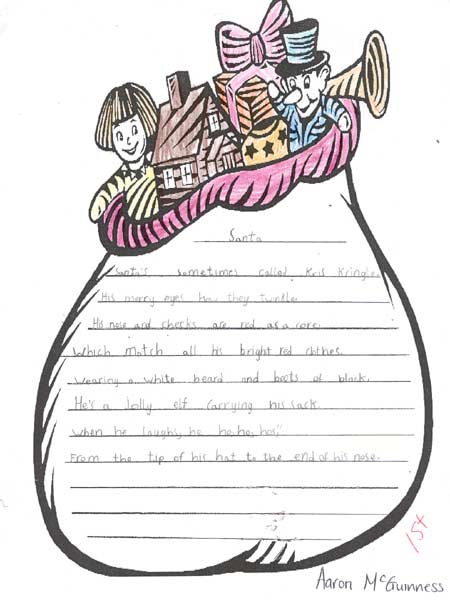 Santa
Santa's sometimes called Kris Kringle.
His merry eyes how they twinkle.
His nose and cheeks are red as a rose.
Which match all his bright red clothes.
Wearing a white beard and boots of black.
He's a jolly elf carrying his sack.
When he laughs, he ho, ho, hos,"
From the tip of his hat to the end of his nose.
Aaron McGuinness